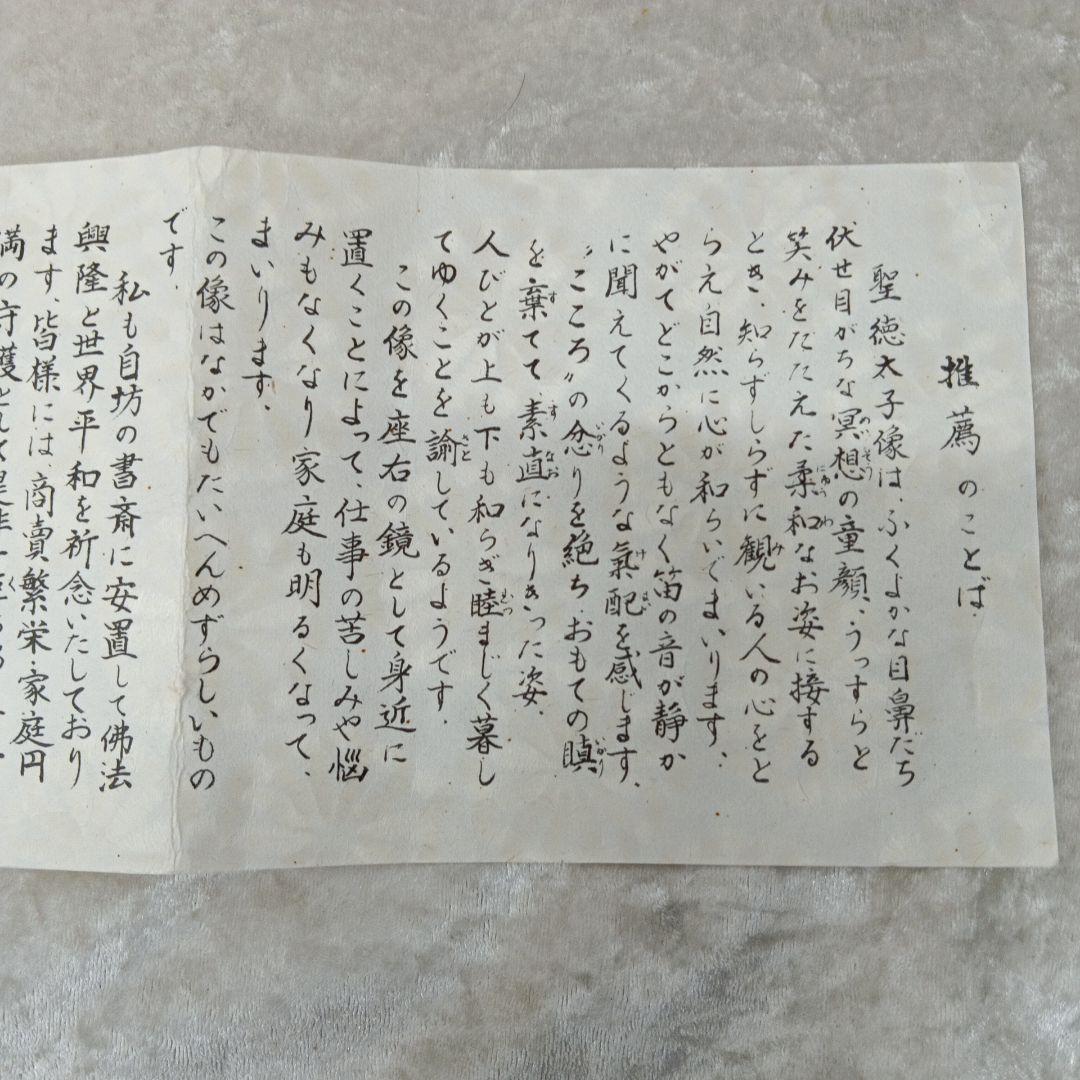 推薦のことば
聖徳太子像は、ふくよかな目鼻だち
伏せ目がちな冥想の童顔、うっすらと
笑みをたたえた柔和なお姿に接する
とき、知らずしらずに観いる人の心をと
らえ自然に心が和らいでまいります、
やがてどこからともなく笛の音が静か
に聞えてくるような氣配を感じます、
〝こころ〟の忿りを絶ち、おもての瞋
を棄てて素直になりきった姿、
人びとが上も下も和らぎ睦まじく暮し
てゆくことを諭しているようです。
この像を座右の鏡として身近に
置くことによって、仕事の苦しみや悩
みもなくなり家庭も明るくなって、
まいります、
この像はなかでもたいへんめずらしいもの
です。
私も自坊の書斎に安置して佛法
興隆と世界平和を祈念いたしており
ます、皆様には、商賣繁栄・家庭円
満の守護